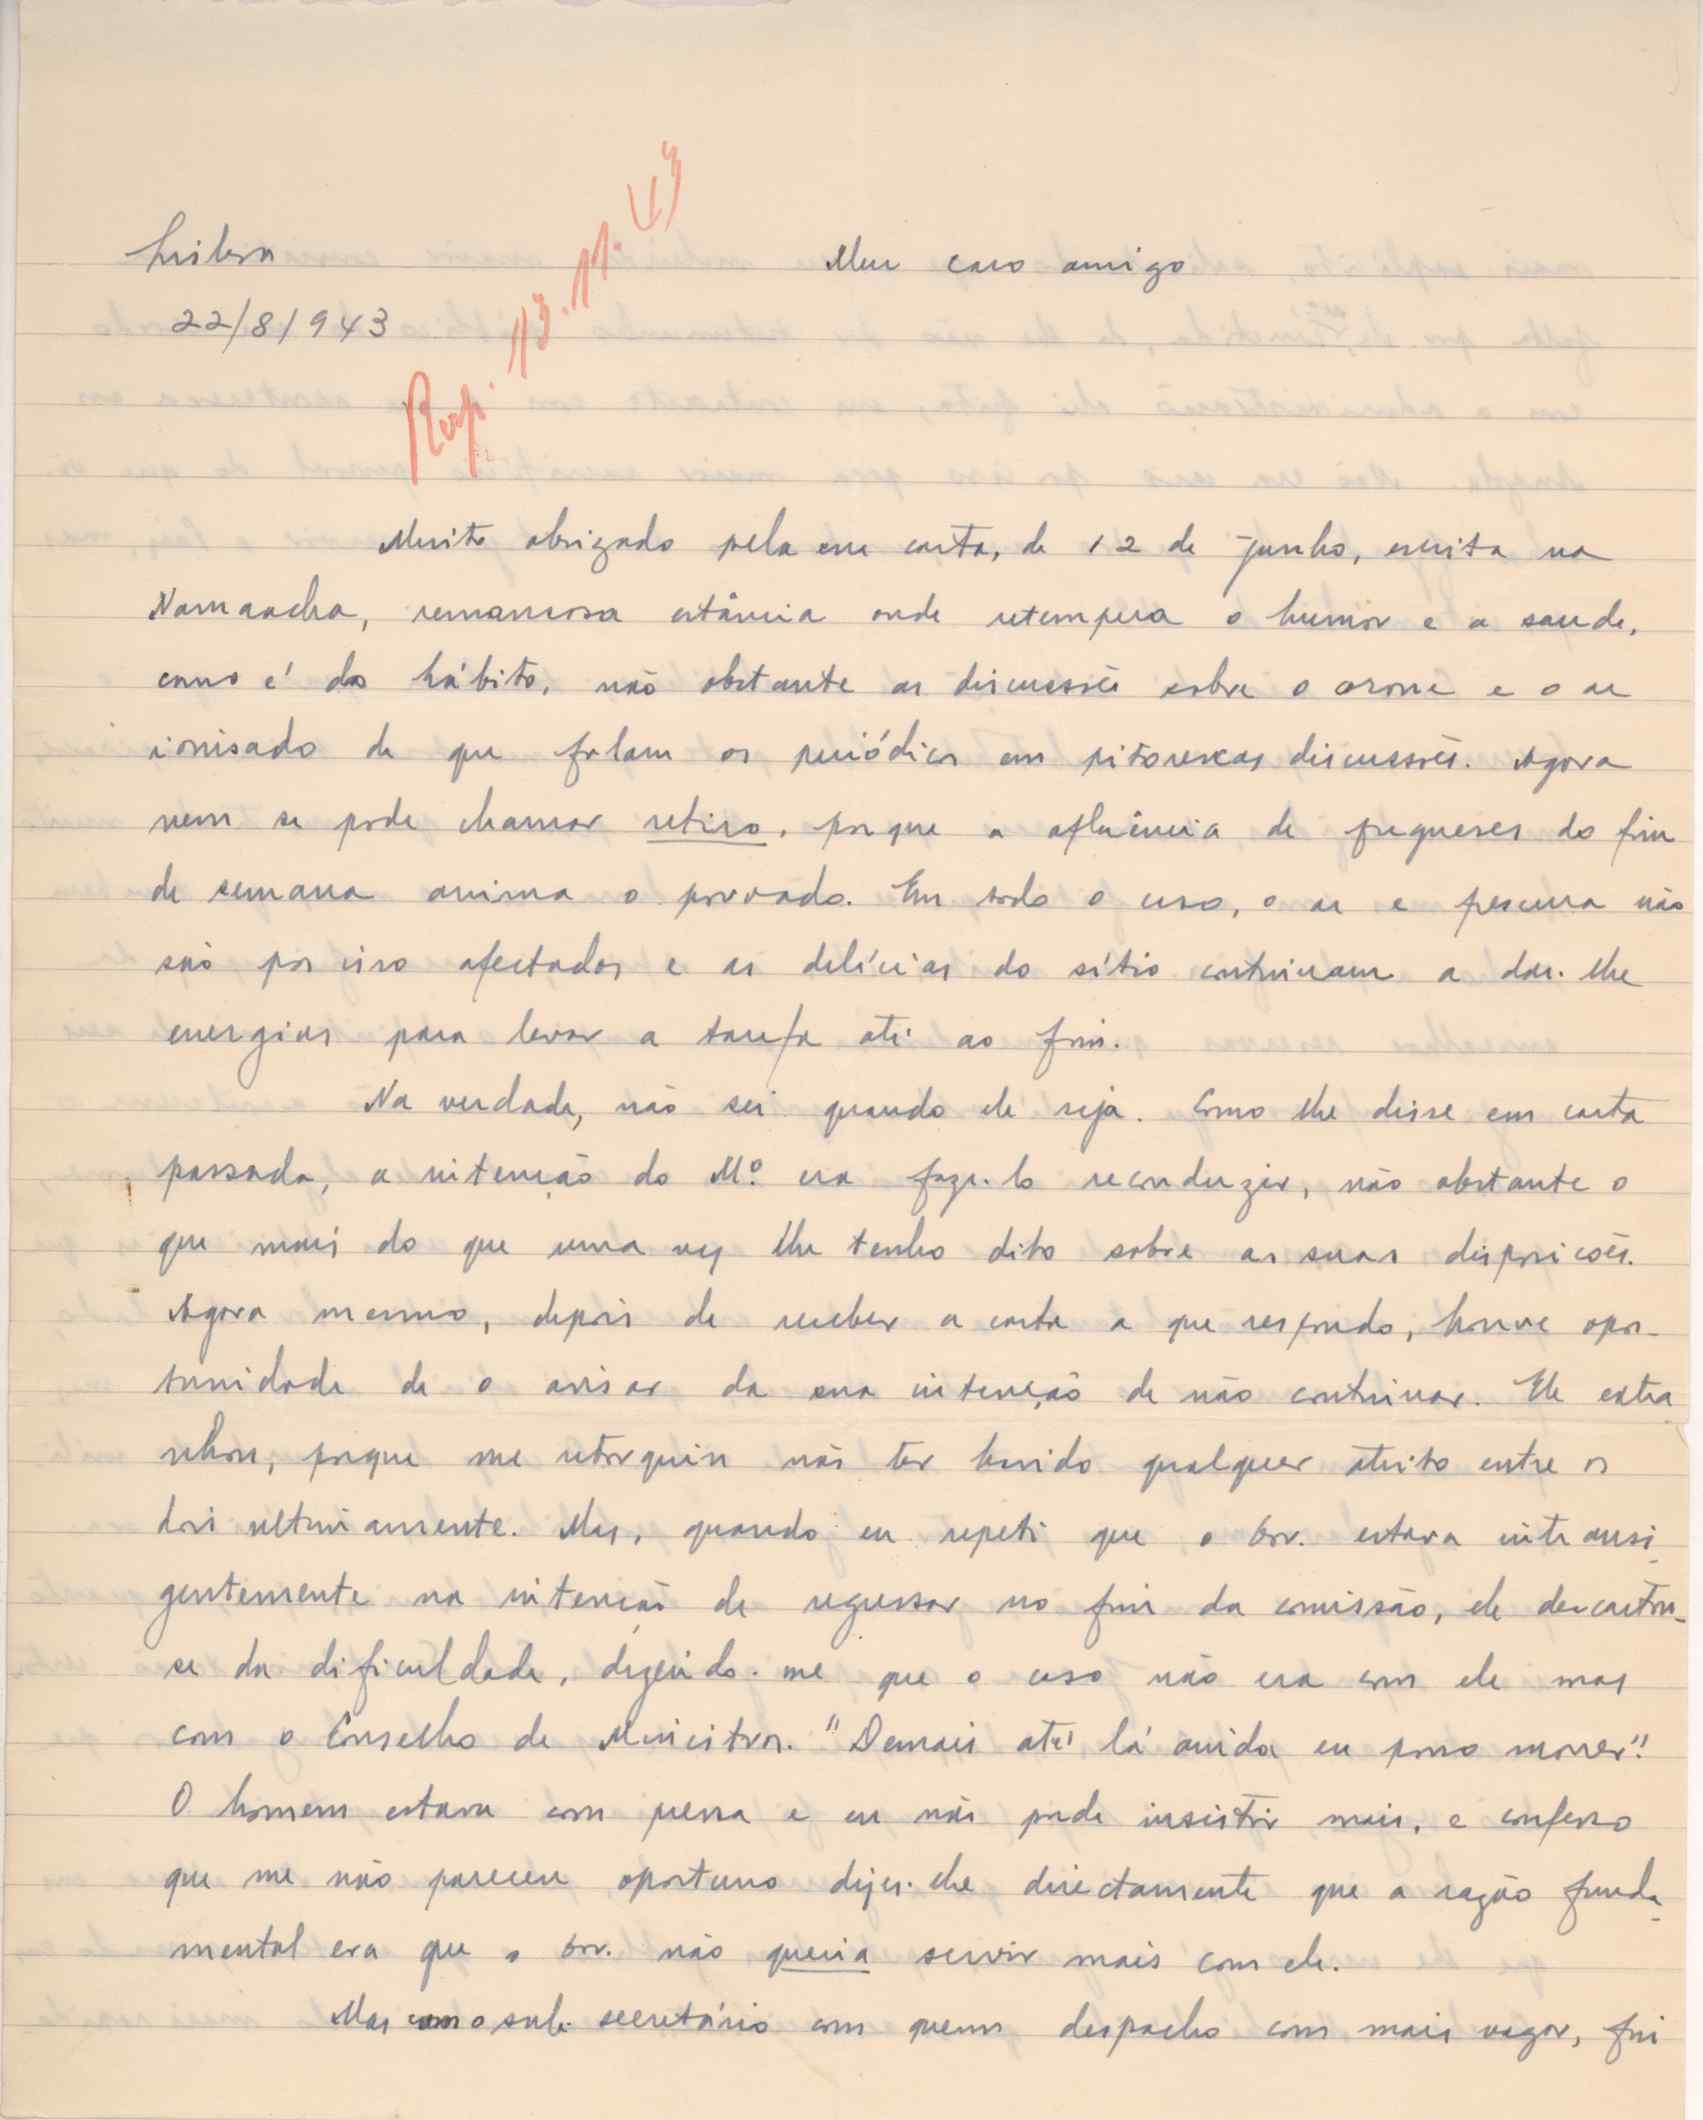 Lisboa
22/8/943
Meu caro amigo
Resp. 13.11.43
Muito obrigado pela sua carta, de 12 de junho, escrita na
Namaacha, remansosa estância onde retempera o humor e a saude,
como é do hábito, não obstante as discussões sobre o ozone e o ar
ionisado de que falam os periódicos em pitorescas discussões. Agora
nem se pode chamar retiro, porque a afluência de fregueses do fim
de semana anima o povoado. Em todo o caso, o ar e frescura não
são por isso afectados e as delícias do sítio continuam a dar-lhe
energias para levar a tarefa até ao fim.
Na verdade, não sei quando ele seja. Como lhe disse em carta
passada, a intenção do Mº. era faze-lo reconduzir, não obstante o
que mais do que uma vez lhe tenho dito sobre as suas disposições.
Agora mesmo, depois de receber a carta a que respondo, houve opor-
tunidade de o avisar da sua intenção de não continuar. Ele extra
nhou, porque me retorquiu não ter havido qualquer atrito entre os
dois ultimamente. Mas, quando eu repeti que o Gov. estava intransi-
gentemente na intenção de regressar no fim da comissão, ele descartou-
se da dificuldade, dizendo-me que o caso não era com ele mas
com o Conselho de Ministros. "Demais até lá ainda eu posso morrer".
O homem estava com pressa e eu não pude insistir mais, e confesso
que me não pareceu oportuno dizer-lhe directamente que a razão funda-
mental era que o Gov. não queria servir mais com ele.
Mas com o sub-secretário com quem despacho com mais vagar, fui